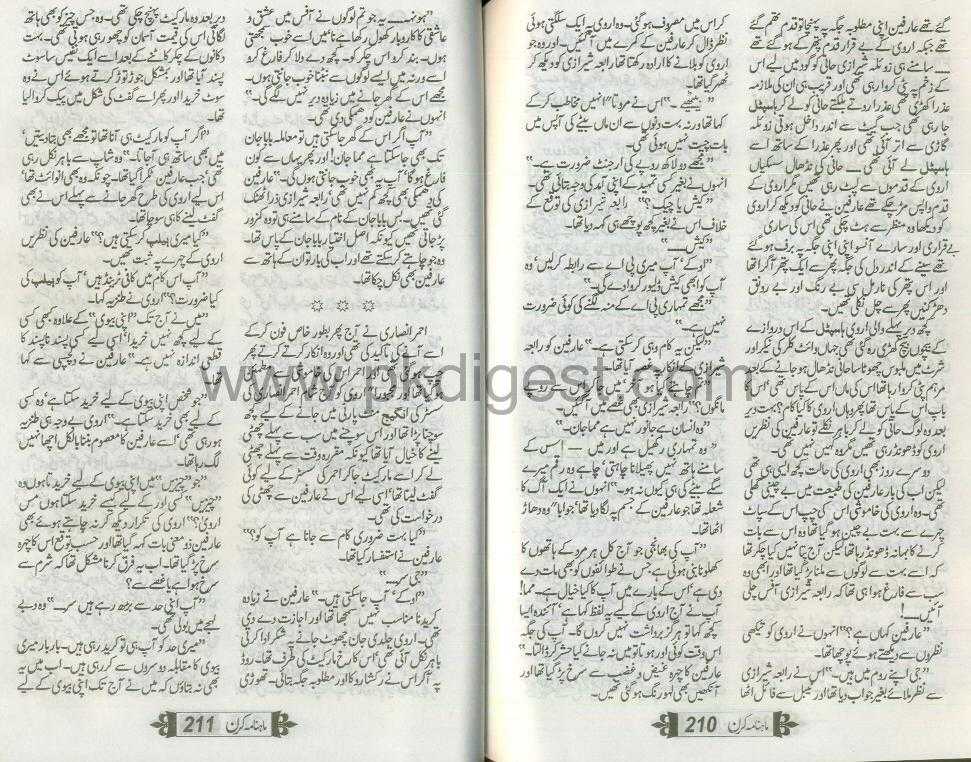 گئے تھے عارفین اپنی مطلوبہ جگہ پہ پہنچا تو قدم تھم گئے
تھے جبکہ اروی کے بے قرار قدم پتھر کے ہو گئے تھے
سامنے ہی زوئلہ شیرازی حانی کو گود میں لیے اس
کے زخم پہ پٹی کروا رہی تھی اور قریب ہی ان کی ملازمہ
عذرا کھڑی تھی عذرا روتے بلکتے حانی کو لے کر ہاسپٹل
جا رہی تھی جب گیٹ سے اندر داخل ہوتی زوئلہ
گاڑی سے اتر آئی تھی اور پھر عذرا کے ساتھ اسے
ہاسپٹل لے آئی تھی حانی کی نڈھال سسکیاں
اروی کے قدموں سے لپٹ رہی تھیں مگر اروی کے
قدم واپس مڑ چکے تھے عارفین نے حانی کو دیکھ کر اروی
کو دیکھا وہ منظر سے ہٹ چکی تھی اس کی ساری
بے قراری اور سارے آنسو اپنی اپنی جگہ پہ برف ہو گئے
تھے سینے کے اندر دل کی جگہ پھر سے ایک پتھر آگرا تھا
اور اس پتھر کی نارمل سی بے رنگ اور بے جان
دھڑکنیں پھر سے چل نکلی تھیں۔
کچھ دیر پہلے والی اروی ہاسپٹل کے اس دروازے
کے بیچوں بیچ کھڑی رہ گئی تھی جہاں وائٹ کلر کی نیکر اور
شرٹ میں ملبوس چھوٹا سا حانی نڈھال ہو جانے کے بعد
مرہم پٹی کروا رہا تھا اس کی ماں اس کے پاس تھی اس کا
باپ اس کے پاس تھا پھر وہاں اروی کا کیا کام؟ بہت دیر
بعد وہ لوگ حانی کو لے کر باہر نکلے تو عارفین کی نظریں
اروی کو ڈھونڈ رہی تھیں مگر وہ نہیں تھی۔
دوسرے روز بھی اروی کی حالت کچھ ایسی ہی تھی
لیکن اب کی بار عارفین کی طبیعت میں بے چینی گھلی
تھی۔ وہ اروی کی خاموشی اس کی چپ اس کے سپاٹ
چہرے سے بہت بے چین ہو گیا تھا وہ اس سے بات
کرنے کا بہانہ ڈھونڈ رہا تھا لیکن آج تاجانے کیا چکر تھا
کہ اسے بہت سے لوگوں سے ملنا پڑ گیا تھا اور ابھی وہ
سب سے فارغ ہوا ہی تھا کہ رابعہ شیرازی آفس چلی
آئیں۔۔۔!
"عارفین کہاں ہے؟" انہوں نے اروی کو تیکھی
نظروں سے دیکھتے ہوئے پوچھا تھا۔
"جی اپنے روم میں ہیں۔" اس نے رابعہ شیرازی
سے نظر ملائے بغیر جواب دیا تھا اور ٹیبل سے فائل اٹھا
کر اس میں مصروف ہو گئی۔ وہ اروی پہ ایک سلگتی ہوئی
نظر ڈال کر عارفین کے کمرے میں آ گئیں۔ اور وہ جو
اروی کو بلانے کا ارادہ رکھتا تھا رابعہ شیرازی کو دیکھ کر
ٹھہر گیا تھا۔
"بیٹھیے۔" اس نے مروتاً انہیں مخاطب کر کے
کہا تھا ورنہ بہت دنوں سے ان ماں بیٹے کی آپس میں
بات چیت نہیں ہوئی تھی۔
"مجھے دو لاکھ روپے کی ارجنٹ ضرورت ہے۔"
انہوں نے بغیر کسی تمہید کے اپنی آمد کی وجہ بتائی تھی۔
"کیش یا چیک؟" رابعہ شیرازی کی توقع کے
خلاف اس نے بغیر کچھ پوچھے ہی کہہ دیا تھا۔
"کیش۔۔۔"
"اوکے' آپ میری پی اے سے رابطہ کر لیں' وہ
آپ کو ابھی کیش ڈیلیور کروا دے گی۔"
"مجھے تمہاری پی اے کے منہ لگنے کی کوئی ضرورت
نہیں ہے۔"
"لیکن یہ کام وہی کر سکتی ہے۔" عارفین کو رابعہ
شیرازی کا انکار تپا گیا تھا۔
میں اس سے روپے
مانگوں؟" رابعہ شیرازی بھی غصے میں آ گئیں۔
"وہ انسان ہے جانور نہیں ہے مما جان۔"
"وہ تمہاری رکھیل ہے اور میں اس کے
سامنے ہاتھ نہیں پھیلانا چاہتی' چاہے وہ رقم میرے
سگے بیٹے کی ہی کیوں نہ ہو۔" انہوں نے ایک آگ کا
شعلہ تھا جو عارفین کے جسم پہ لگا دیا تھا' جواباً" وہ دھاڑ
اٹھا تھا۔
"آپ کی بھانجی جو آج کل ہر مرد کے ہاتھوں کا
کھلونا بنی ہوئی ہے جس نے طوائفوں کو بھی مات دے
دی ہے' اس کے بارے میں آپ کا کیا خیال ہے۔ مما!
آپ نے آج اروی کے لیے یہ لفظ کہا ہے' آئندہ ایسا
کچھ کہا تو ہرگز برداشت نہیں کروں گا۔ آپ کی جگہ
اس وقت کوئی اور ہوتا تو میں نہ جانے کیا حشر کر ڈالتا۔"
عارفین کا چہرہ غیض و غضب سے سرخ پڑ گیا تھا اور
آنکھیں بھی لہو رنگ ہو گئی تھیں۔
ماہنامہ کرن 210
"ہونہہ۔۔۔ یہ جو تم لوگوں نے آفس میں عشق و
عاشقی کا کاروبار کھول رکھا ہے نا' میں اسے خوب سمجھتی
ہوں۔ بند کرو اس چکر کو۔ کچھ دے دلا کر فارغ کرو
اسے ورنہ میں ایسے لوگوں سے نبٹنا خوب جانتی ہوں۔
مجھے اس کے گھر جانے میں زیادہ دیر نہیں لگے گی۔"
انہوں نے عارفین کو دھمکی دی تھی۔
"آپ اگر اس کے گھر جا سکتی ہیں تو معاملہ بابا جان
تک بھی جا سکتا ہے مما جان! اور پھر یہاں سے کون
فارغ ہو گا' آپ یہ بھی خوب جانتی ہوں گی۔" عارفین
کی دھمکی بھی کچھ کم نہیں تھی' رابعہ شیرازی ذرا ٹھٹک
گئی تھیں۔ بس بابا جان کے نام کے سامنے ہی تو وہ کمزور
پڑ جاتی تھیں کیونکہ اصل اختیار بابا جان کے پاس تھا۔
وہ جو چاہتے کر سکتے تھے اور اب کی بار تو ان کے ہاتھ سے
عارفین بھی نکل چکا تھا۔
☼ ☼ ☼
احمر انصاری نے آج پھر بطور خاص فون کر کے
اسے آنے کی تاکید کی تھی اور وہ انکار کرتے کرتے پھر
اروی کو شام احمر انصاری کی
سسٹر کی انگیجمنٹ پارٹی میں جانے کے لیے کچھ
سوچنا پڑا تھا اور اس سوچنے میں سب سے پہلے چھٹی
لینے کا خیال آیا تھا کیونکہ مقررہ وقت سے پہلے چھٹی
لے کر اسے مارکیٹ جا کر احمر کی سسٹر کے لیے کوئی
گفٹ لینا تھا' اسی لیے اس نے عارفین سے چھٹی کی
درخواست کی تھی۔
"کیا بہت ضروری کام سے جانا ہے آپ کو؟"
عارفین نے استفسار کیا تھا۔
"جی سر۔۔۔"
"اوکے' آپ جا سکتی ہیں۔" عارفین نے زیادہ
کریدنا مناسب نہیں سمجھا تھا اور اجازت دے دی
تھی۔ اروی جلدی جان چھوٹ جانے پہ شکر ادا کرتی
باہر نکل آئی تھی' اس کا رخ مارکیٹ کی طرف تھا۔ روڈ
پہ آ کر اس نے رکشہ روکا اور مطلوبہ جگہ بتائی۔ تھوڑی
دیر بعد وہ مارکیٹ پہنچ چکی تھی۔ وہ جس چیز کو بھی ہاتھ
لگاتی اس کی قیمت آسمان کو چھو رہی ہوتی تھی۔ بہت
دکانوں کے چکر کاٹنے کے بعد اسے ایک نفیس سا سوٹ
پسند آیا تھا اور بمشکل جوڑ توڑ کرتے ہوئے اس نے وہ
سوٹ خریدا اور پھر اسے گفٹ کی شکل میں پیک کروا لیا
تھا۔
"اگر آپ کو مارکیٹ ہی آنا تھا تو مجھے بھی بتا دیتیں'
میں بھی ساتھ ہی آ جاتا۔" وہ شاپ سے باہر نکل رہی
تھی' جب عارفین ٹکرا گیا تھا۔ چونکہ وہ بھی انوائٹ تھا'
اس لیے اروی کی طرح گھر جانے سے پہلے اس نے بھی
گفٹ لینے کا ہی سوچا تھا۔
"کیا میری ہیلپ کر سکتی ہیں؟" عارفین کی نظریں
اروی کے چہرے پہ ثبت تھیں۔
"آپ اس کام میں کافی ٹرینڈ ہیں' آپ کو ہیلپ کی
کیا ضرورت؟" اروی نے طنزیہ کہا۔
"میں نے آج تک "اپنی بیوی" کے علاوہ بھی کسی
کے لیے کچھ نہیں خریدا' اسی لیے کسی پسند ناپسند کا
قطعی اندازہ نہیں ہے۔" عارفین نے دلچسپی سے کہا
تھا۔
"جو شخص اپنی بیوی کے لیے خرید سکتا ہے' وہ کسی
کے لیے بھی خرید سکتا ہے۔" اروی بے وجہ ہی طنزیہ
ہو رہی تھی' اسے عارفین کا معصوم بننا بالکل اچھا نہیں
لگ رہا تھا۔
"جو "چیزیں" میں اپنی بیوی کے لیے خریدتا ہوں وہ
"چیزیں" کسی اور کے لیے کیسے خرید سکتا ہوں مس
اروی؟" اروی کی تکرار دیکھ کر نہ چاہتے ہوئے بھی
عارفین ذو معنی بات کہہ گیا تھا اور حسب توقع اس کا چہرہ
سرخ پڑ گیا تھا۔ اب یہ فرق کرنا مشکل تھا کہ شرم سے
سرخ ہوا ہے یا غصے سے؟
"آپ اپنی حد سے بڑھ رہے ہیں سر۔" وہ دبے
لہجے میں بولی تھی۔
"میری حد کو آپ ہی تو کرید رہی ہیں۔ بار بار میری
بیوی کا مقابلہ دوسروں سے کر رہی ہیں۔ اب میں یہ
بھی نہ بتاؤں کہ میں نے آج تک اپنی بیوی کے لیے
ماہنامہ کرن 211
www.pkdigest.com